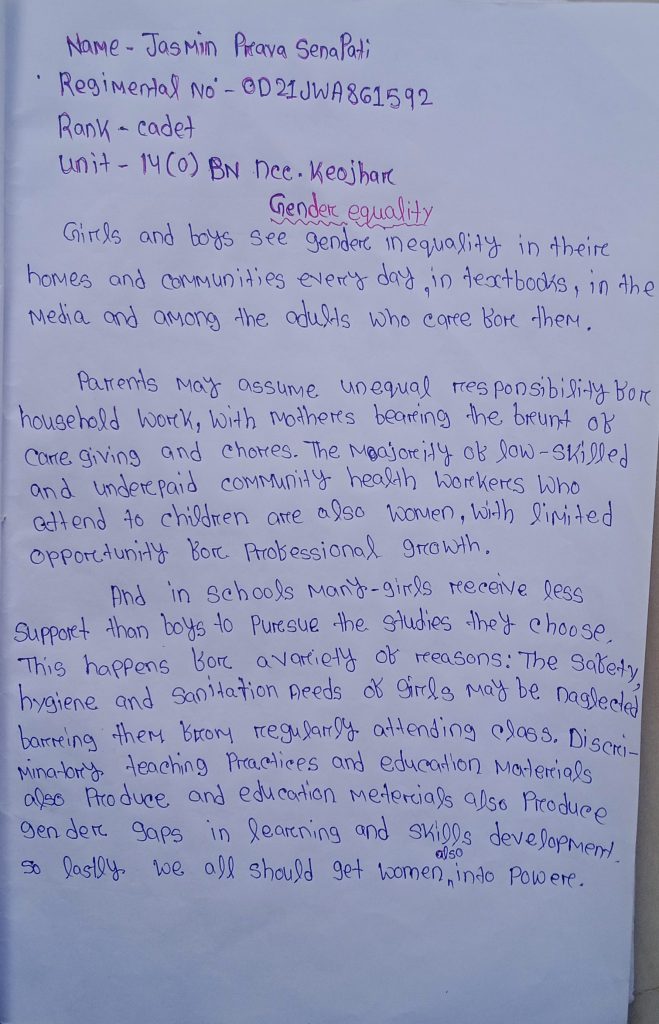 Name - Jasmin Prava Senapati
Regimental No - OD21JWA861592
Rank - cadet
Unit - 14(O) BN ncc. Keojhar
Gender equality
Girls and boys see gender inequality in their
homes and communities every day, in textbooks, in the
Media and among the adults who care for them.
Parents may assume unequal responsibility for
household work, with mothers bearing the brunt of
care giving and chores. The Majority of low-skilled
and underpaid community health workers who
attend to children are also women, with limited
opportunity for Professional growth.
And in schools many-girls receive less
support than boys to Pursue the studies they choose.
This happens for a variety of reasons: The safety,
hygiene and sanitation needs of girls may be naglected
barring them from regularly attending class. Discri-
minatory teaching Practices and education Materials
also Produce and education meterials also Produce
gender gaps in learning and skills development.
so lastly we all should get women, also into Power.